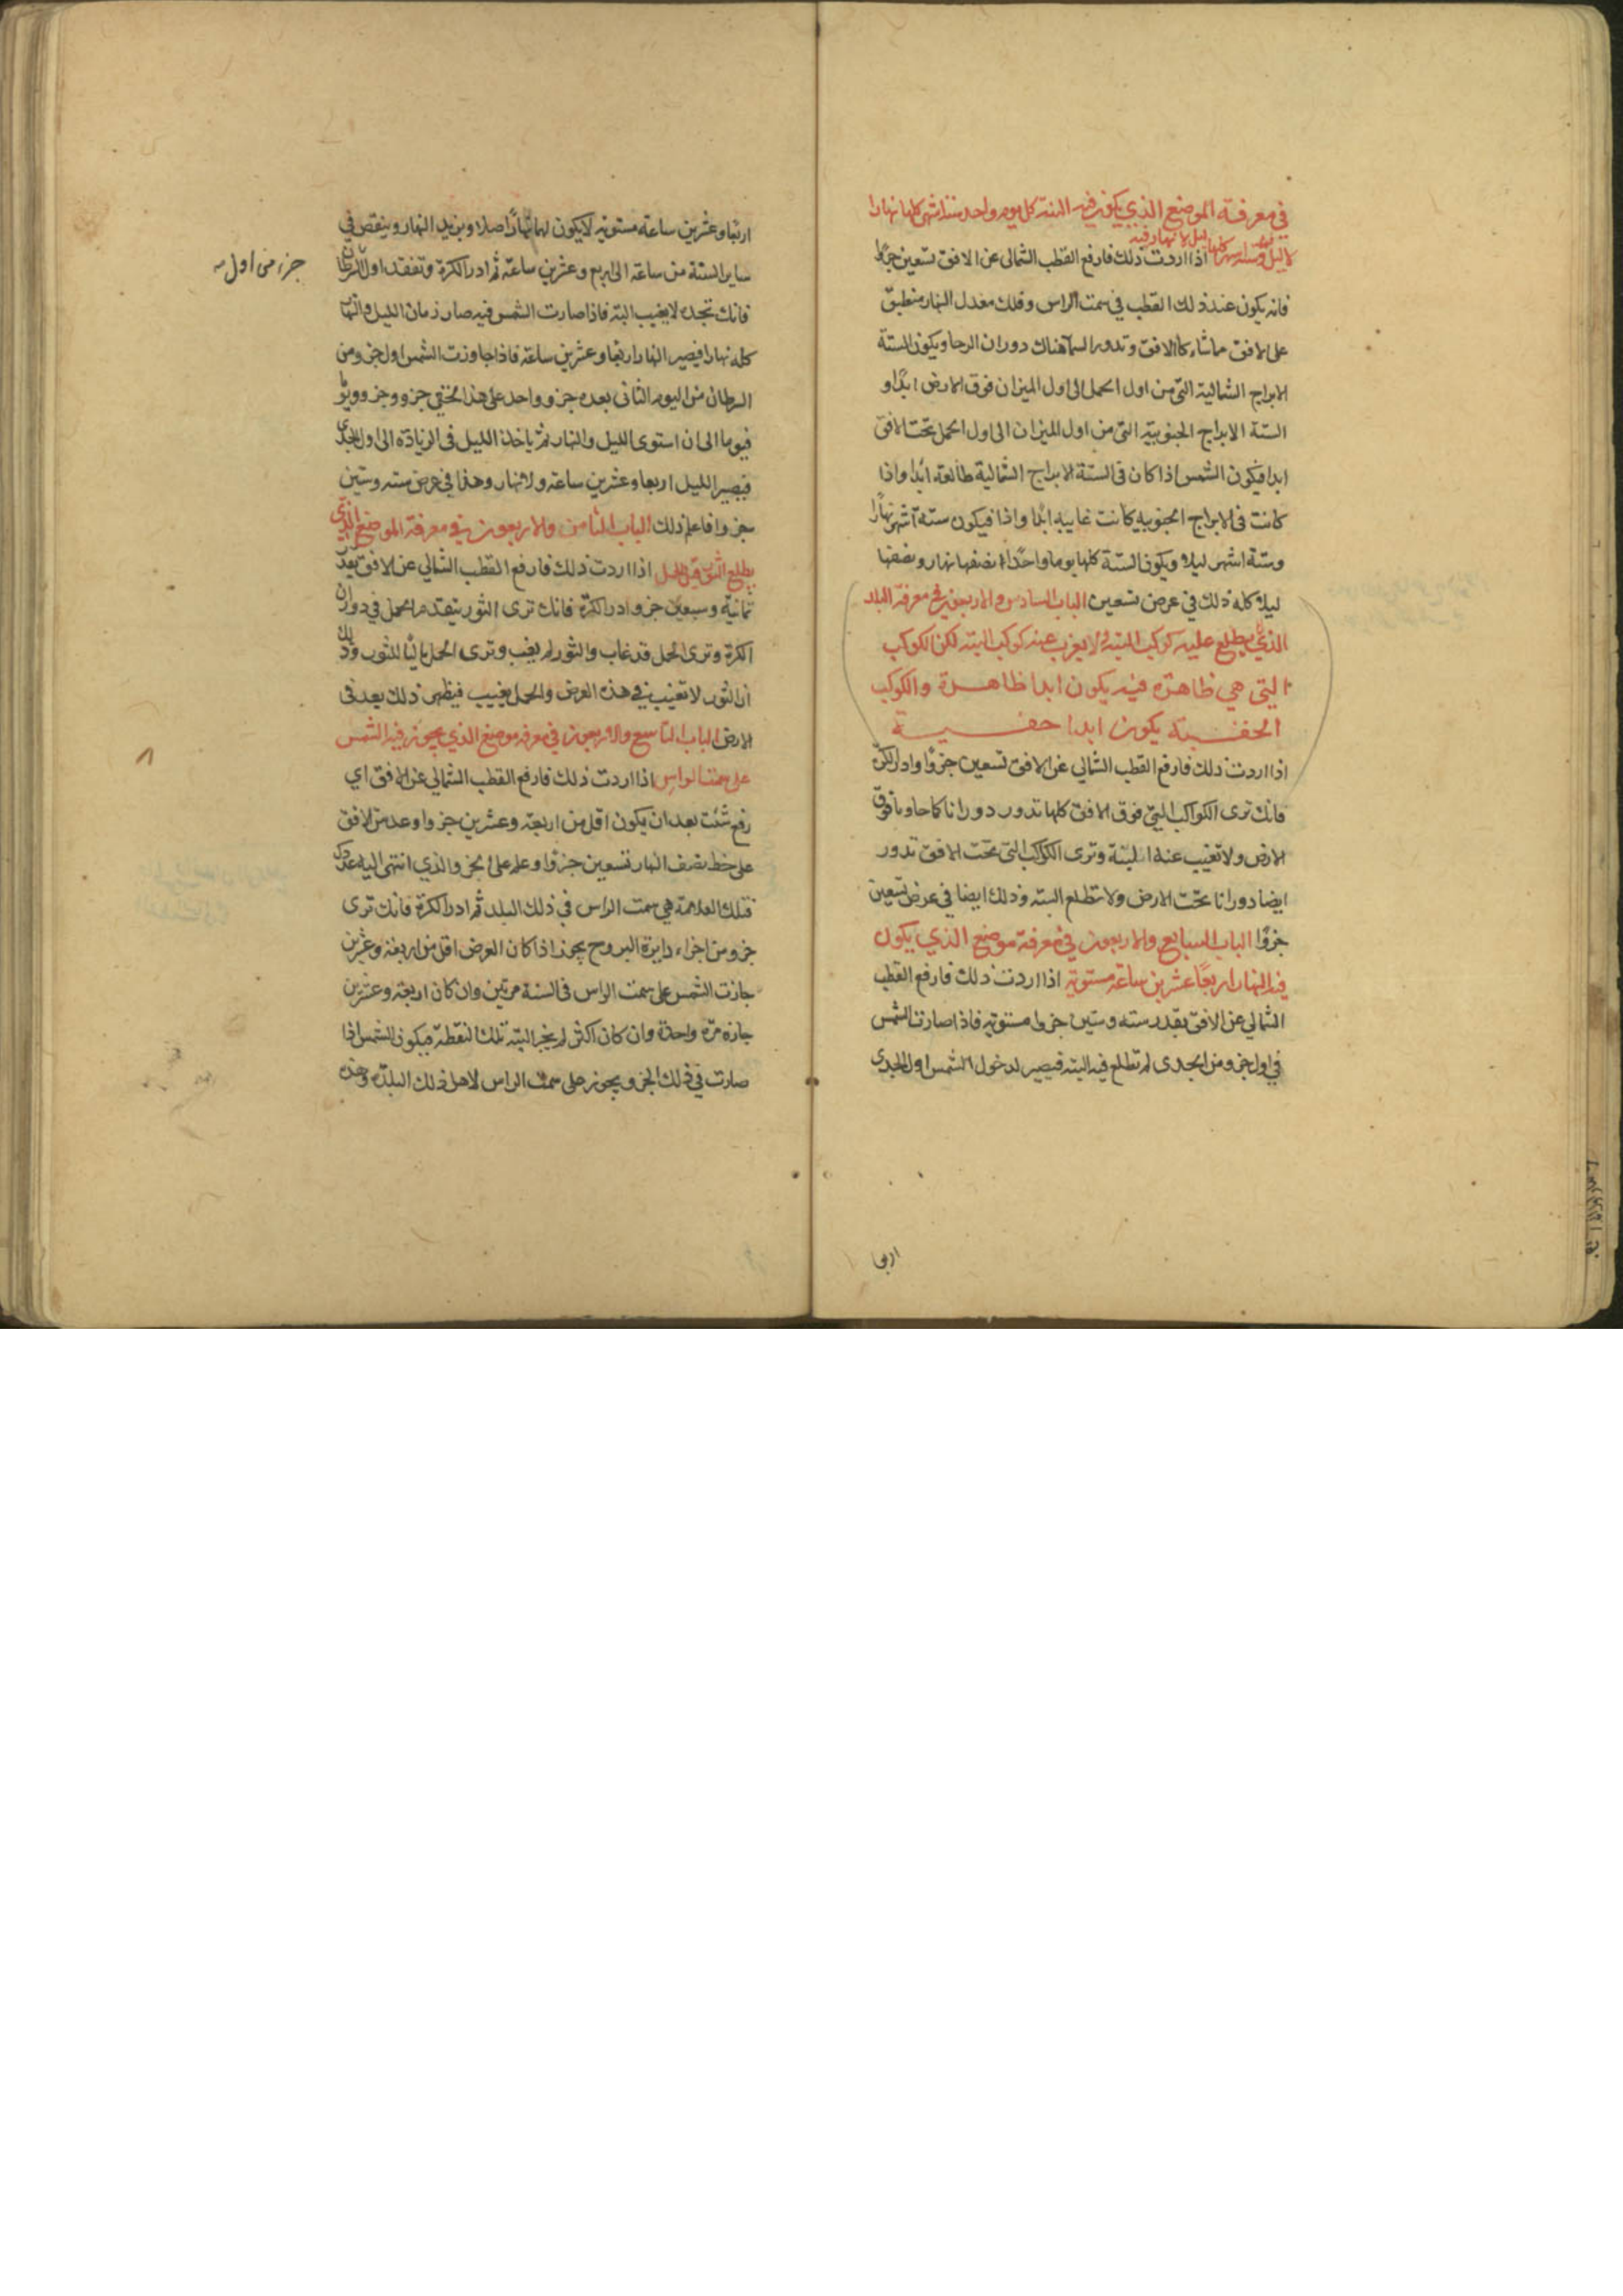 في معرفة الموضع الذي يكون فيه السنة كل يوم واحد ستة اشهر كلها نهارا
لا ليل فيه وستة اشهر كلها ليل لا نهار فيه اذا اردت ذلك فارفع القطب الشمالى عن الافق تسعين جزءا
فانه يكون عند ذلك القطب في سمت الراس وفلك معدل النهار منطبق
على الافق مماشاء كالافق وتدور السما هناك دوران الرحا ويكون الستة
الابراج الشمالية التى من اول الحمل الى اول الميزان فوق الارض ابدا و
الستة الابراج الجنوبية التى من اول الميزان الى اول الحمل تحت الافق
ابدا فيكون الشمس اذا كان فى الستة الابراج الشمالية طالعة ابدا واذا
كانت فى الابراج الجنوبيه كانت غايبه ابدا واذا فيكون ستة اشهر نهارا
وستة اشهر ليلا ويكون السنة كلها يوما واحدا نصفها نهار ونصفها
ليلا كله ذلك في عرض تسعين الباب السادس والاربعون في معرفة البلد
الذي يطلع عليه كوكب البتة ولا يغرب عنه كوكب البته لكن الكوكب
التي هي ظاهرة فيه يكون ابدا ظاهرة والكوكب
الخفية يكون ابدا خفية
اذا اردت ذلك فارفع القطب الشمالي عن الافق تسعين جزوا وادر الكرة
فانك ترى الكواكب التي فوق الافق كلها تدور دورانا كاحاوبا فوق
الارض ولا تغيب عنه البتة وترى الكواكب التى تحت الافق تدور
ايضا دورانا تحت الارض ولا تطلع البته وذلك ايضا في عرض تسعين
جزوا الباب السابع والاربعون في معرفة موضع الذي يكون
فيه النهار اربعا عشرين ساعة مستوية اذا اردت ذلك فارفع القطب
الشمالي عن الافق بقدر سته وستين جزوا مستويه فاذا صارت الشمس
في اول جزو من الجدى لم تطلع فيه البته فيصير لدخول الشمس اول الجدى
اربعا
اربعا وعشرين ساعة مستويه لا يكون لها نهارا اصلا ويزيد النهار وينقص في
ساير السنة من ساعة الى اربع وعشرين ساعة ثم ادر الكرة وتفقد اول السرطان
جزء من اول
فانك تجده لا يغيب البته فاذا صارت الشمس فيه صار زمان الليل والنهار
كله نهارا فيصير النهار اربعا وعشرين ساعة فاذا جاوزت الشمس اول جزو من
السرطان من اليوم الثانى بعده جزو واحد على هذا جزو وجزو ويوما
فيوما الى ان استوى الليل والنهار ثم ياخذ الليل فى الزيادة الى اول الجدي
فيصير الليل اربعا وعشرين ساعة ولا نهار وهذا في عرض سته وستين
جزوا فاعلم ذلك الباب الثامن والاربعون في معرفة الموضع الذي
يطلع الثور قبل الحمل اذا اردت ذلك فارفع القطب الشمالي عن الافق بقدر
ثمانية وسبعين جزو وادر الكرة فانك ترى الثور يتقدم الحمل في دوران
الكرة وترى الحمل قد غاب والثور لم يغيب وترى الحمل تاليا للثور وذلك
ان الثور لا تغيب في هذه العرض والحمل يغيب فيظهر ذلك بعد فى
الارض الباب التاسع والاربعون في معرفة موضع الذي يجوز فيه الشمس
على سمت الراس اذا اردت ذلك فارفع القطب الشمالي عن الافق اي
رفع شئت بعد ان يكون اقل من اربعة وعشرين جزوا وعد من الافق
على خط نصف النهار تسعين جزوا وعلم على الجزو الذي انتهى اليه عددك
فتلك العلامة هي سمت الراس في ذلك البلد ثم ادر الكرة فانك ترى
جزو من اجزاء دايرة البروج يجوز اذا كان العرض اقل من اربعة وعشرين
جازت الشمس على سمت الراس فى السنة مرتين وان كان اربعة وعشرين
جازه مرة واحدة وان كان اكثر لم يجز البتة تلك النقطة فيكون الشمس اذا
صارت في ذلك الجزو يجوز على سمت الراس لاهل ذلك البلدة وحده